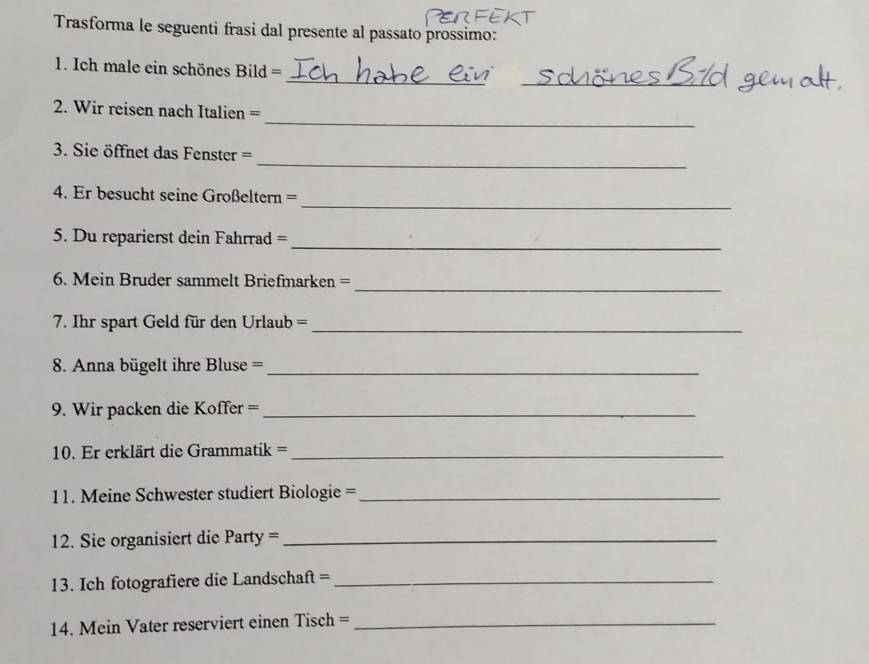 PERFEKT
Trasforma le seguenti frasi dal presente al passato prossimo:
1. Ich male ein schönes Bild = Ich habe ein schönes Bild gemalt.
2. Wir reisen nach Italien =
3. Sie öffnet das Fenster =
4. Er besucht seine Großeltern =
5. Du reparierst dein Fahrrad =
6. Mein Bruder sammelt Briefmarken =
7. Ihr spart Geld für den Urlaub =
8. Anna bügelt ihre Bluse =
9. Wir packen die Koffer =
10. Er erklärt die Grammatik =
11. Meine Schwester studiert Biologie =
12. Sie organisiert die Party =
13. Ich fotografiere die Landschaft =
14. Mein Vater reserviert einen Tisch =